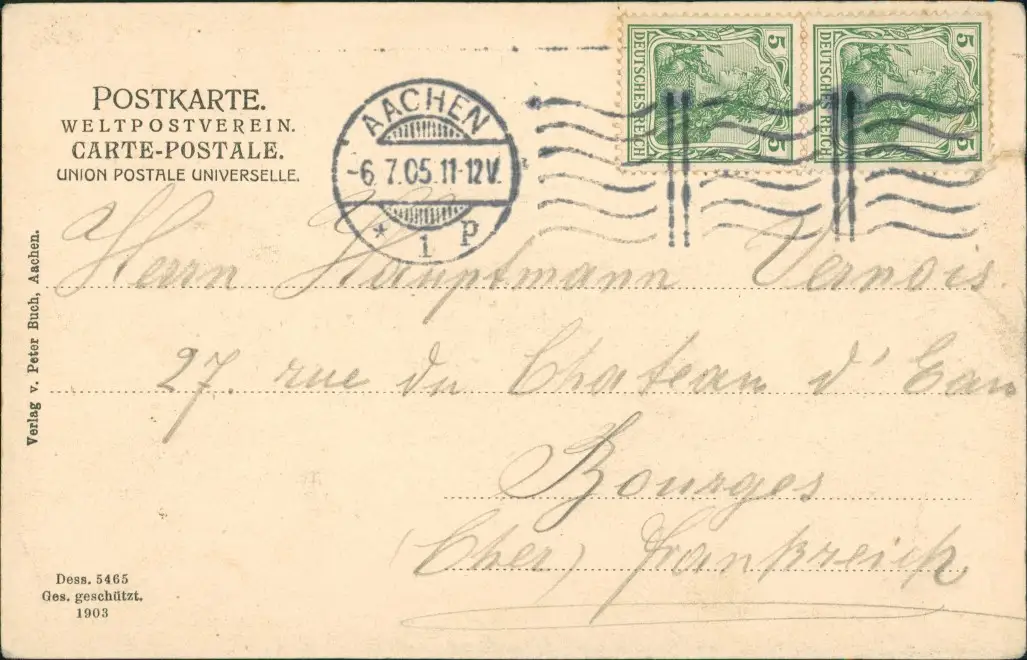 POSTKARTE.
WELTPOSTVEREIN.
CARTE-POSTALE.
UNION POSTALE UNIVERSELLE.
AACHEN
-6.7.05.11-12V.
* 1 P
5 DEUTSCHES REICH 5
5 DEUTSCHES REICH 5
Herrn Hauptmann Vernois
27. rue du Chateau d'Eau
Bourges
(Cher) Frankreich
Verlag v. Peter Buch, Aachen.
Dess. 5465
Ges. geschützt.
1903